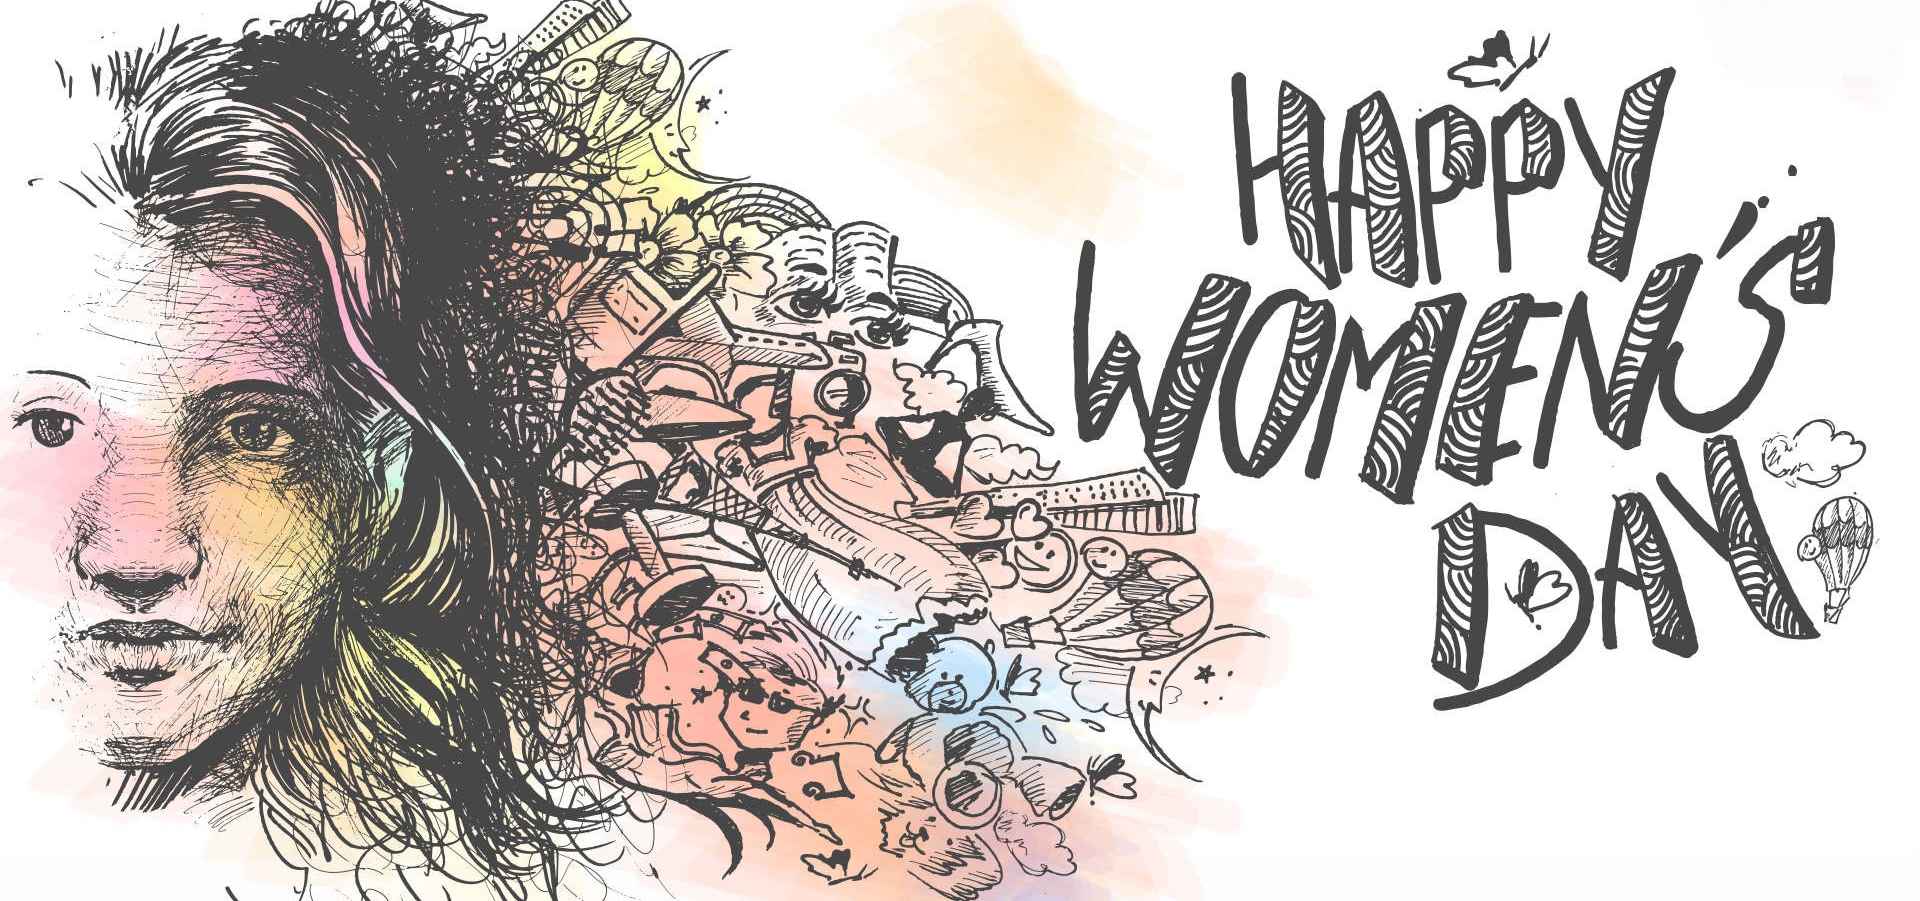 HAPPY
WOMEN'S
DAY